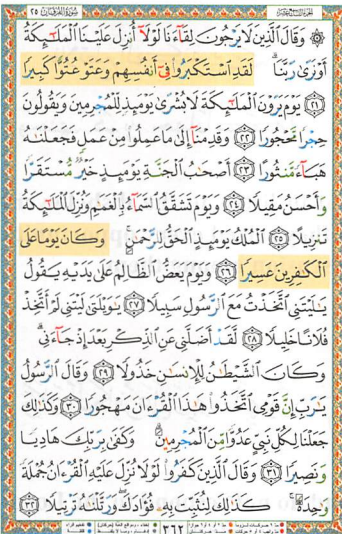 الجزء التاسع عشر سورة الفرقان ٢٥
۞ وَقَالَ ٱلَّذِينَ لَا يَرْجُونَ لِقَآءَنَا لَوْلَآ أُنزِلَ عَلَيْنَا ٱلْمَلَٰٓئِكَةُ
أَوْ نَرَىٰ رَبَّنَا ۗ لَقَدِ ٱسْتَكْبَرُوا۟ فِىٓ أَنفُسِهِمْ وَعَتَوْ عُتُوًّا كَبِيرًا
٢١ يَوْمَ يَرَوْنَ ٱلْمَلَٰٓئِكَةَ لَا بُشْرَىٰ يَوْمَئِذٍ لِّلْمُجْرِمِينَ وَيَقُولُونَ
حِجْرًا مَّحْجُورًا ٢٢ وَقَدِمْنَآ إِلَىٰ مَا عَمِلُوا۟ مِنْ عَمَلٍ فَجَعَلْنَٰهُ
هَبَآءً مَّنثُورًا ٢٣ أَصْحَٰبُ ٱلْجَنَّةِ يَوْمَئِذٍ خَيْرٌ مُّسْتَقَرًّا
وَأَحْسَنُ مَقِيلًا ٢٤ وَيَوْمَ تَشَقَّقُ ٱلسَّمَآءُ بِٱلْغَمَٰمِ وَنُزِّلَ ٱلْمَلَٰٓئِكَةُ
تَنزِيلًا ٢٥ ٱلْمُلْكُ يَوْمَئِذٍ ٱلْحَقُّ لِلرَّحْمَٰنِ ۚ وَكَانَ يَوْمًا عَلَى
ٱلْكَٰفِرِينَ عَسِيرًا ٢٦ وَيَوْمَ يَعَضُّ ٱلظَّالِمُ عَلَىٰ يَدَيْهِ يَقُولُ
يَٰلَيْتَنِى ٱتَّخَذْتُ مَعَ ٱلرَّسُولِ سَبِيلًا ٢٧ يَٰوَيْلَتَىٰ لَيْتَنِى لَمْ أَتَّخِذْ
فُلَانًا خَلِيلًا ٢٨ لَّقَدْ أَضَلَّنِى عَنِ ٱلذِّكْرِ بَعْدَ إِذْ جَآءَنِى ۗ
وَكَانَ ٱلشَّيْطَٰنُ لِلْإِنسَٰنِ خَذُولًا ٢٩ وَقَالَ ٱلرَّسُولُ
يَٰرَبِّ إِنَّ قَوْمِى ٱتَّخَذُوا۟ هَٰذَا ٱلْقُرْءَانَ مَهْجُورًا ٣٠ وَكَذَٰلِكَ
جَعَلْنَا لِكُلِّ نَبِىٍّ عَدُوًّا مِّنَ ٱلْمُجْرِمِينَ ۗ وَكَفَىٰ بِرَبِّكَ هَادِيًا
وَنَصِيرًا ٣١ وَقَالَ ٱلَّذِينَ كَفَرُوا۟ لَوْلَا نُزِّلَ عَلَيْهِ ٱلْقُرْءَانُ جُمْلَةً
وَٰحِدَةً ۚ كَذَٰلِكَ لِنُثَبِّتَ بِهِۦ فُؤَادَكَ ۖ وَرَتَّلْنَٰهُ تَرْتِيلًا ٣٢
٣٦٢